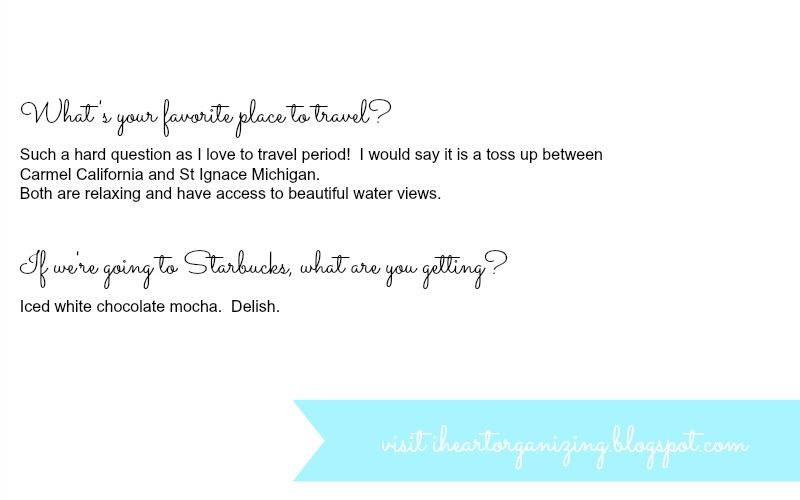 What's your favorite place to travel?
Such a hard question as I love to travel period!  I would say it is a toss up between
Carmel California and St Ignace Michigan.
Both are relaxing and have access to beautiful water views.
If we're going to Starbucks, what are you getting?
Iced white chocolate mocha.  Delish.
visit iheartorganizing.blogspot.com